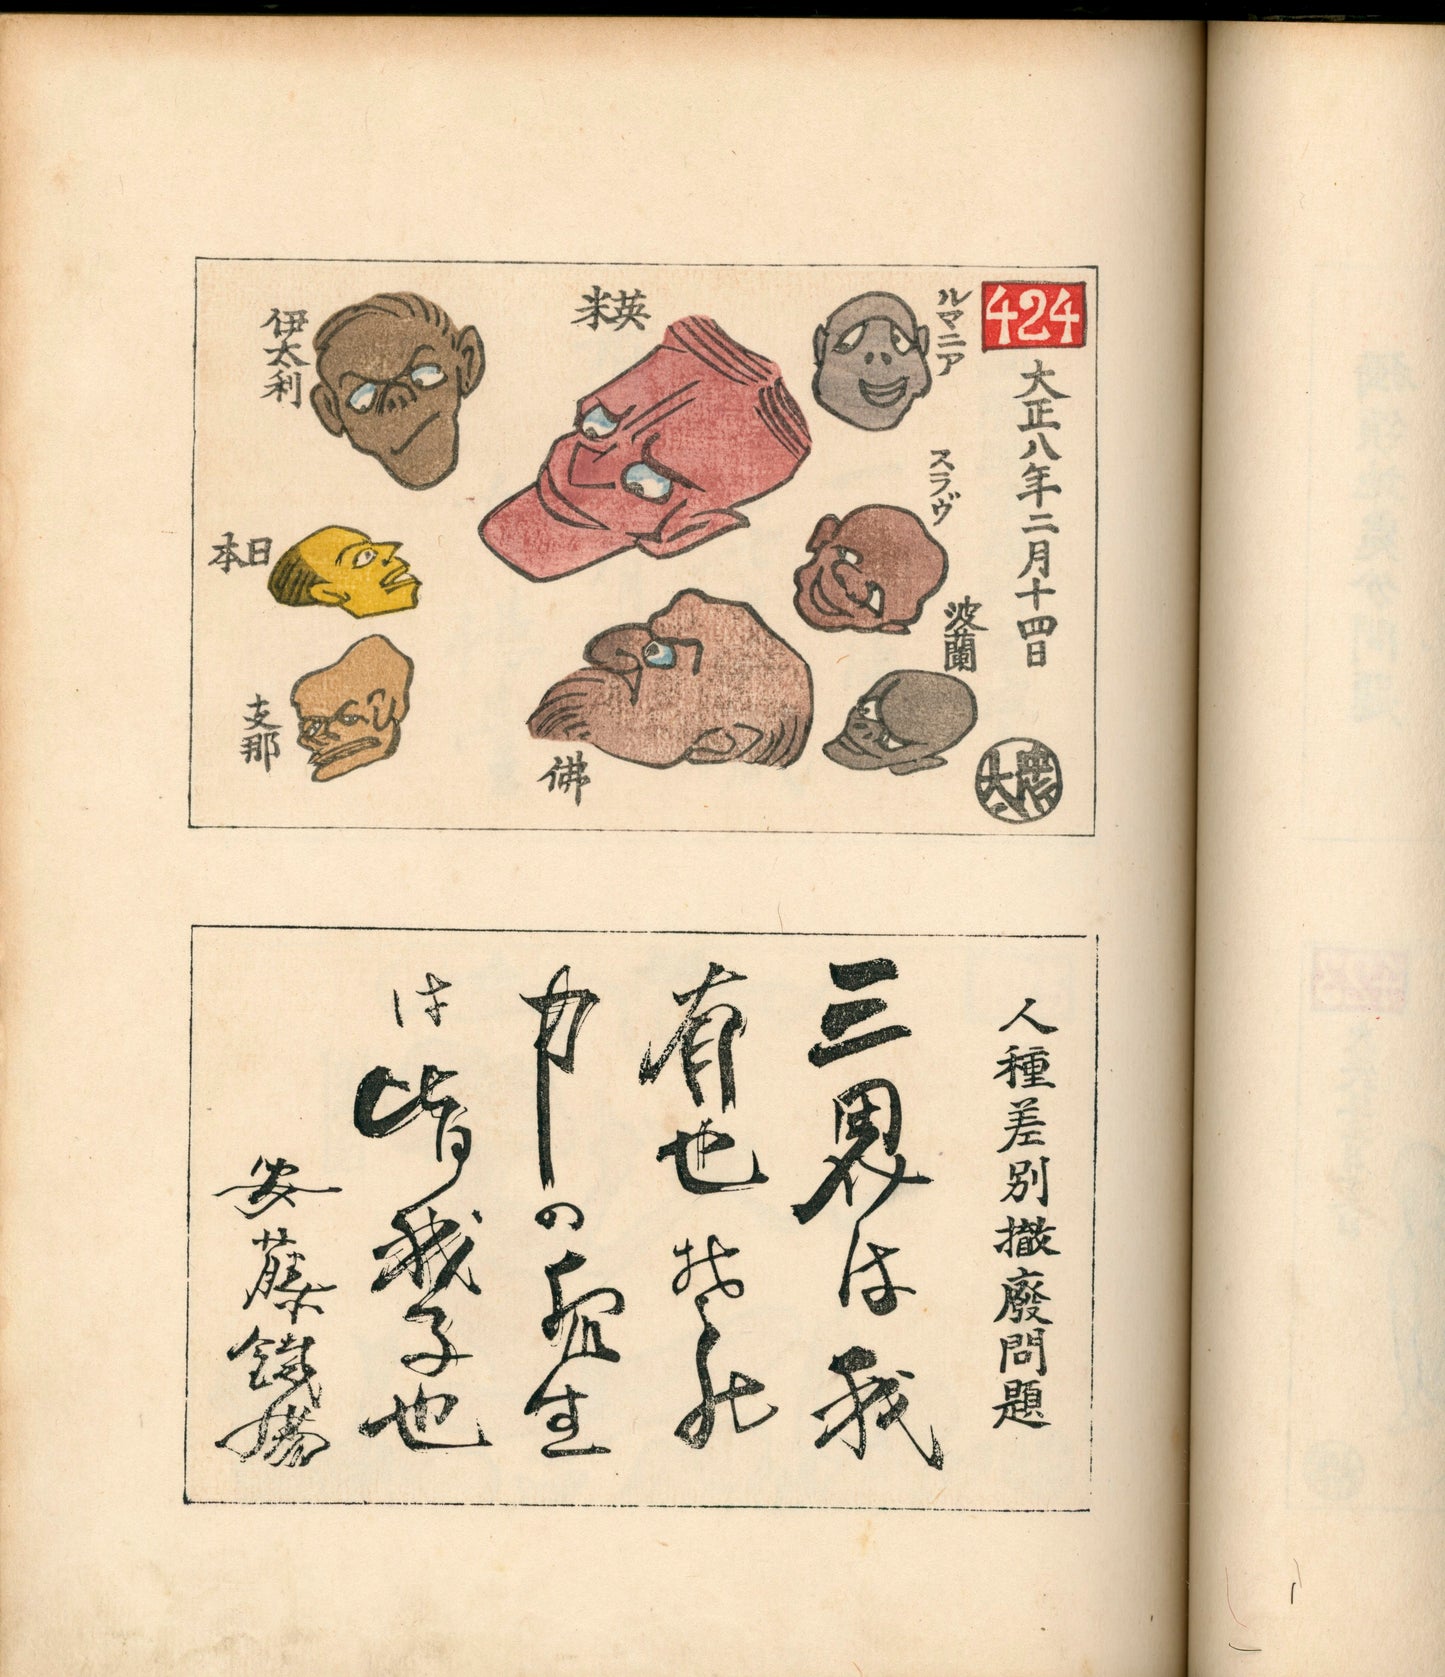 424
大正八年二月十四日
ルマニア
スラヴ
波蘭
英米
佛
伊太利
日本
支那
人種差別撤廃問題
三界は我
有也
の衆生
は皆我子也
安藤鐵腸